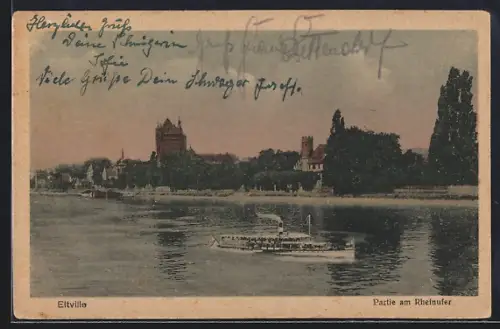 Herzliche Grüße
Deine Schwägerin
Sofie
Viele Grüße Dein Schwager Josef.
Gruß
Eltville
Partie am Rheinufer